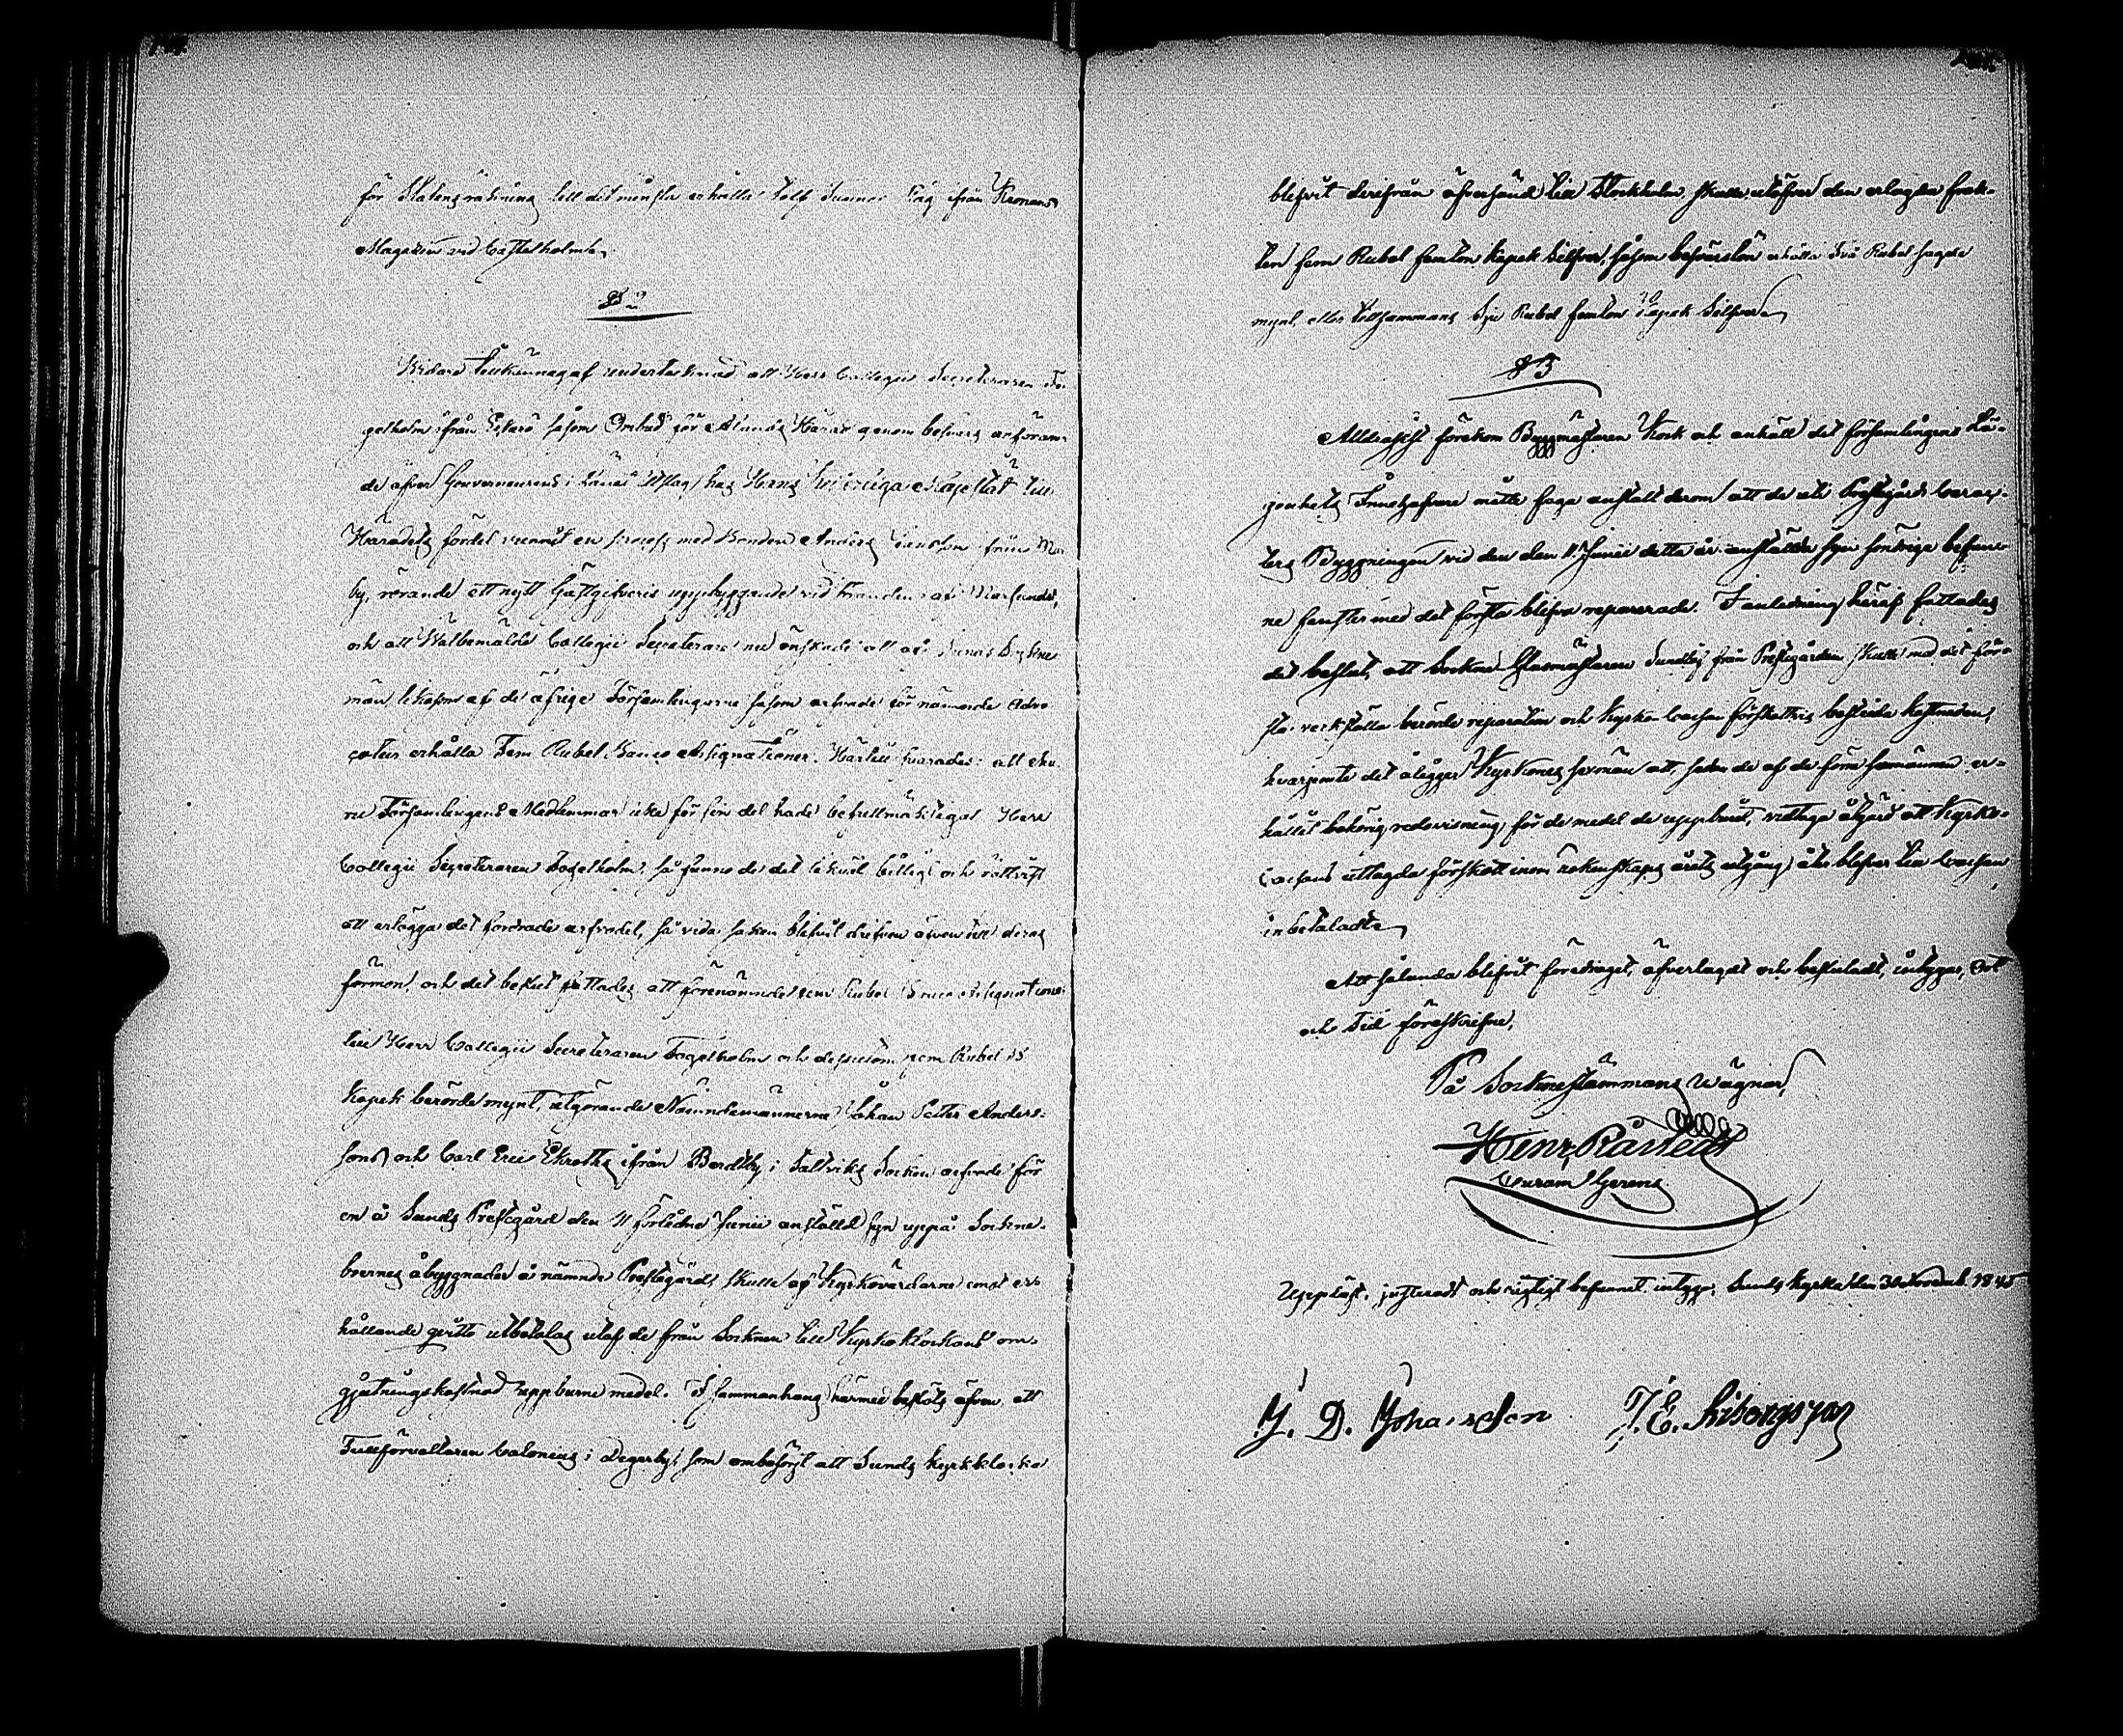 för Statens räkning till det minsta erhålla tolf tunnor Råg ifrån Kronans
Magazin vid Castelholm.
§ 2
Vidare tillkännagaf undertecknad att Herr Collegii Secreteraren Fo-
gelholm ifrån Eckerö såsom Ombud för Ålands Härad genom besvärs anföran-
de öfver Gouverneurens i Länet Utslag hos Hans Kejserliga Majestät till
Häradets fördel vunnit en process med Bonden Anders från
by, rörande ett nytt Gästgifveris uppbyggande vid stranden af Marsundet,
och att Wälbemälde Collegii Secreterare nu önskade att af Sunds Sockne-
män likasom af de öfrige Församlingarne såsom arfvode för nämnde Advo-
catur erhålla Fem Rubel Banco Assignationer. Härtill svarades: att ehu-
ru Församlingens Medlemmar icke för sin del hade befullmäktigat Herr
Collegii Secreteraren Fogelholm, så funno de det likväl billigt och rättvist
att erlägga det fordrade arfvodet, så vida saken blifvit drifven äfven till deras
förmon, och det beslut fattades att förenämnde fem Rubel Banco Assignationer
till Herr Collegii Secreteraren Fogelholm och dessutom fem Rubel 15
Kopek berörde mynt, utgörande Nämndemännerne Johan Petter Anders-
sons och Carl Eric Ekroths ifrån Bertby i Saltviks Socken arfvode för
en å Sunds Prestgård den 11 förledne Junii anställd syn uppå Sockne-
boernes åbyggnader å nämnde Prestegård, skulle af Kyrkovärdarne emot er-
hållande qvitto utbetalas utaf de från Socknen till Kyrkoklockans om-
gjutningskostnad uppburne medel. I sammanhang härmed beslöts äfven att
Tullförvaltaren Calonius i Degerby, som ombesörjt att Sunds Kyrkklocka
blifvit derifrån öfversänd till Stockholm skulle utöfver den erlagda frak-
ten fem Rubel femton kopek Silfver, såsom besvärslön erhålla två Rubel sagde
mynt, eller tillsammans sju Rubel femton Kopek Silfver.
§ 3
Alldrasist förekom Byggmästaren Kock och anhöll det församlingens Lä-
genhets Innehafvare måtte foga anstalt derom att de uti Prestgårds Carac-
ters Byggningen vid den den 11 Junii detta år anställda syn söndriga befun-
ne fenster med det första blifva reparerade. I anledning häraf fattades
det beslut, att Sockne Glasmästaren Sundby från Prestgården skulle med det för-
sta verkställa berörde reparation och Kyrko Cassan förskottvis bestrida kostnaden,
hvarjemte det ålägger Kyrkones sexmän att, sedan de af de förra sexmännen er-
hållit behörig redovisning för de medel de uppburit, vidtaga åtgärd att Kyrko-
Cassans uttagda förskott inom räkenskaps årets utgång åter blifver till Cassan
inbetaladt.
Att sålunda blifvit föredraget, öfverlagdt och beslutadt, intygar, Ort
och Tid föreskrifne,
På Sockenestämmans wägnar,
Curam Gerens.
Uppläst, justeradt och rigtigt befunnet, intyga: Sunds Kyrka den November 1845
J. D. Johansson